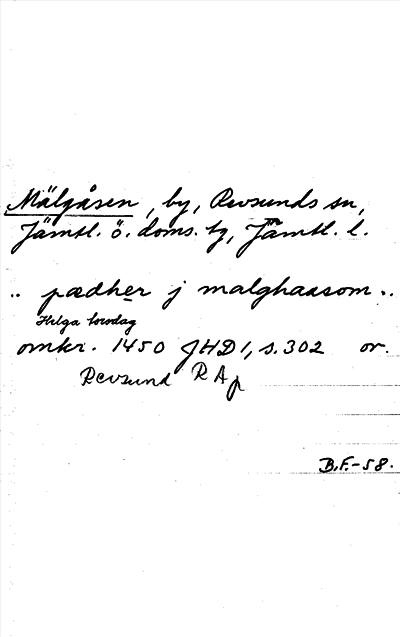 Mälgåsen, by, Revsunds sn,
Jämtl. ö. doms. tg, Jämtl. l.
.. pædher j malghaasom ..
Helga lørodag
omkr. 1450 JHD 1, s. 302 or.
Revsund RAp
B.F.-58.